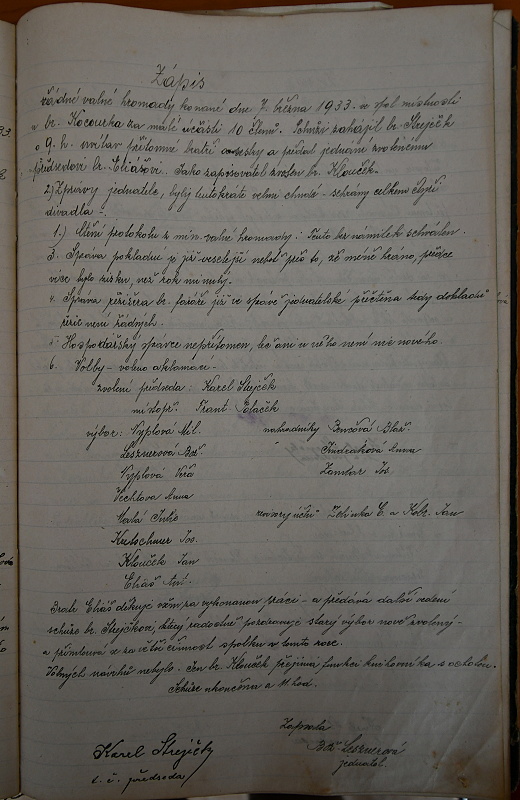 Zápis
řádné valné hromady konané dne 7. března 1933. ve spol. místnosti
u br. Kocourka za malé účasti 10 členů. Schůzi zahájil br. Strejček
o 9. h. uvítav přítomné bratří a sestry a předal jednání zvolenému
předsedovi br. Eliášovi. Jako zapisovatel zvolen br. Klouček.
2.) Zprávy jednatele, byly tentokráte velmi chudé - schůzy celkem čtyři
divadla -.
1.) Čtení protokolu z min. valné hromady: Tento bez námitek schválen.
3. Zpráva pokladní je již veselejší neboť přes to, že méně hráno, přece
více bylo zisku, než rok minulý.
4. Zpráva režiséra br. již ve zprávě jednatelské přečtena tudy dokladů
není žádných.
5. Hospodářský správce nepřítomen, leč ani u něho není nic nového.
6. Volby - voleno aklamací -
zvoleni předseda: Karel Strejček
místopř. Frant. Poláček
výbor: Vyplová Mil. náhradníky Bencová Blaž.
Lesznerová Bož. Anna
Vyplová Věra Jos.
Vechtova Anna
Malá revisory účtů Zelinka Č. a Kolz. Jan
Kutschner Jos.
Klouček Jan
Eliáš Ant.
Bratr Eliáš děkuje všem za vykonanou práci - a předává další vedení
schůze br. Strejčkovi, který radostně pozdravuje starý výbor nově zvolený -
a přimlouvá se za větší činnost spolku v tomto roce.
Volných návrhů nebylo. Jen br. Klouček přejímá funkci knihovníka s ochotou.
Schůze ukončena v 11. hod.
Zapsala
Bož. Lesznerová
jednatel.
Karel Strejčky
t. č. předseda